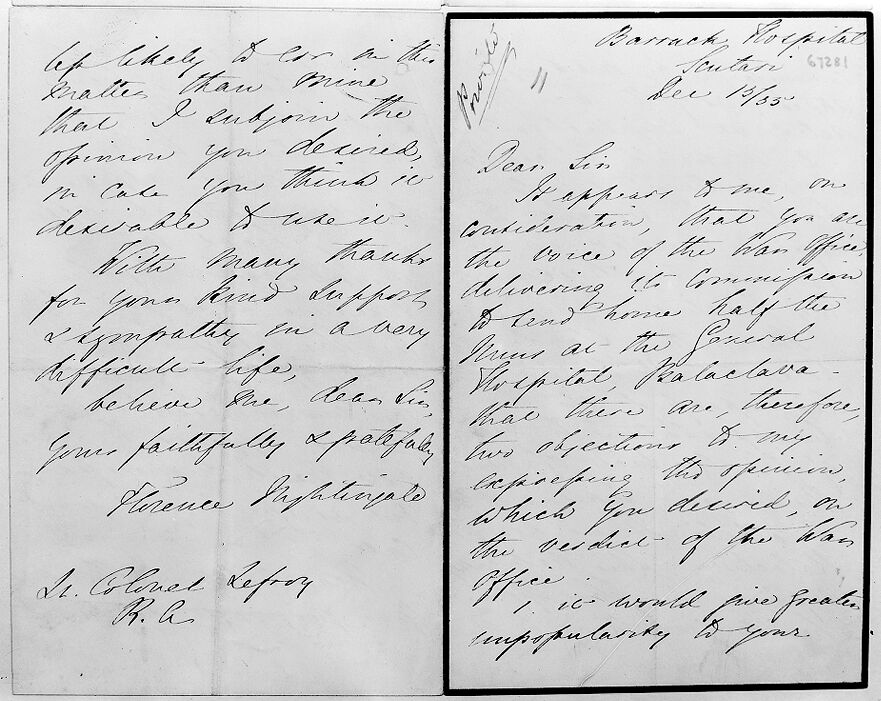 Private
11
Barrack Hospital
Scutari
67281
Dec 15/55
Dear Sir
It appears to me, on
consideration, that you are
the voice of the War Office,
delivering its Commission
to send home half the
Nurses at the General
Hospital, Balaclava -
that there are, therefore,
two objections to my
expressing the opinion,
which you desired, on
the verdict of the War
Office.
1. it would give greater
unpopularity to your
less likely to err in this
matter than mine
that I subjoin the
opinion you desired,
in case you think it
desirable to use it.
With many thanks
for your kind support
& sympathy in a very
difficult life,
believe me, dear Sir,
yours faithfully & gratefully
Florence Nightingale
Lt. Colonel Lefroy
R. A.